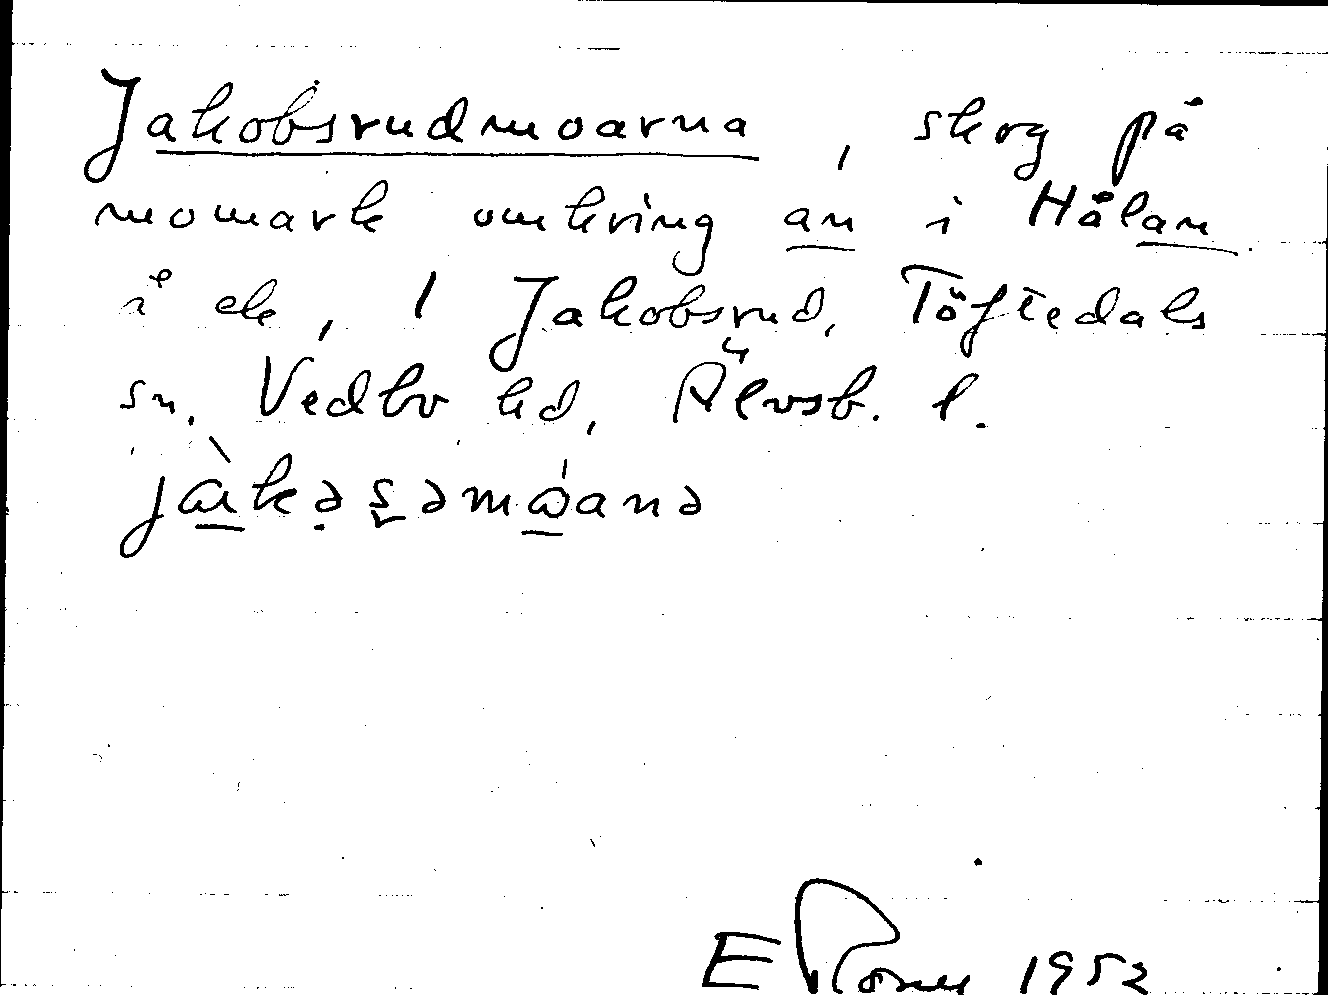 Jakobsrudmoarna, skog på
momark omkring an i Hålan
i ek, 1 Jakobsrud, Töftedals
sn. Vedbo hd, Älvsb. l.
E 1952